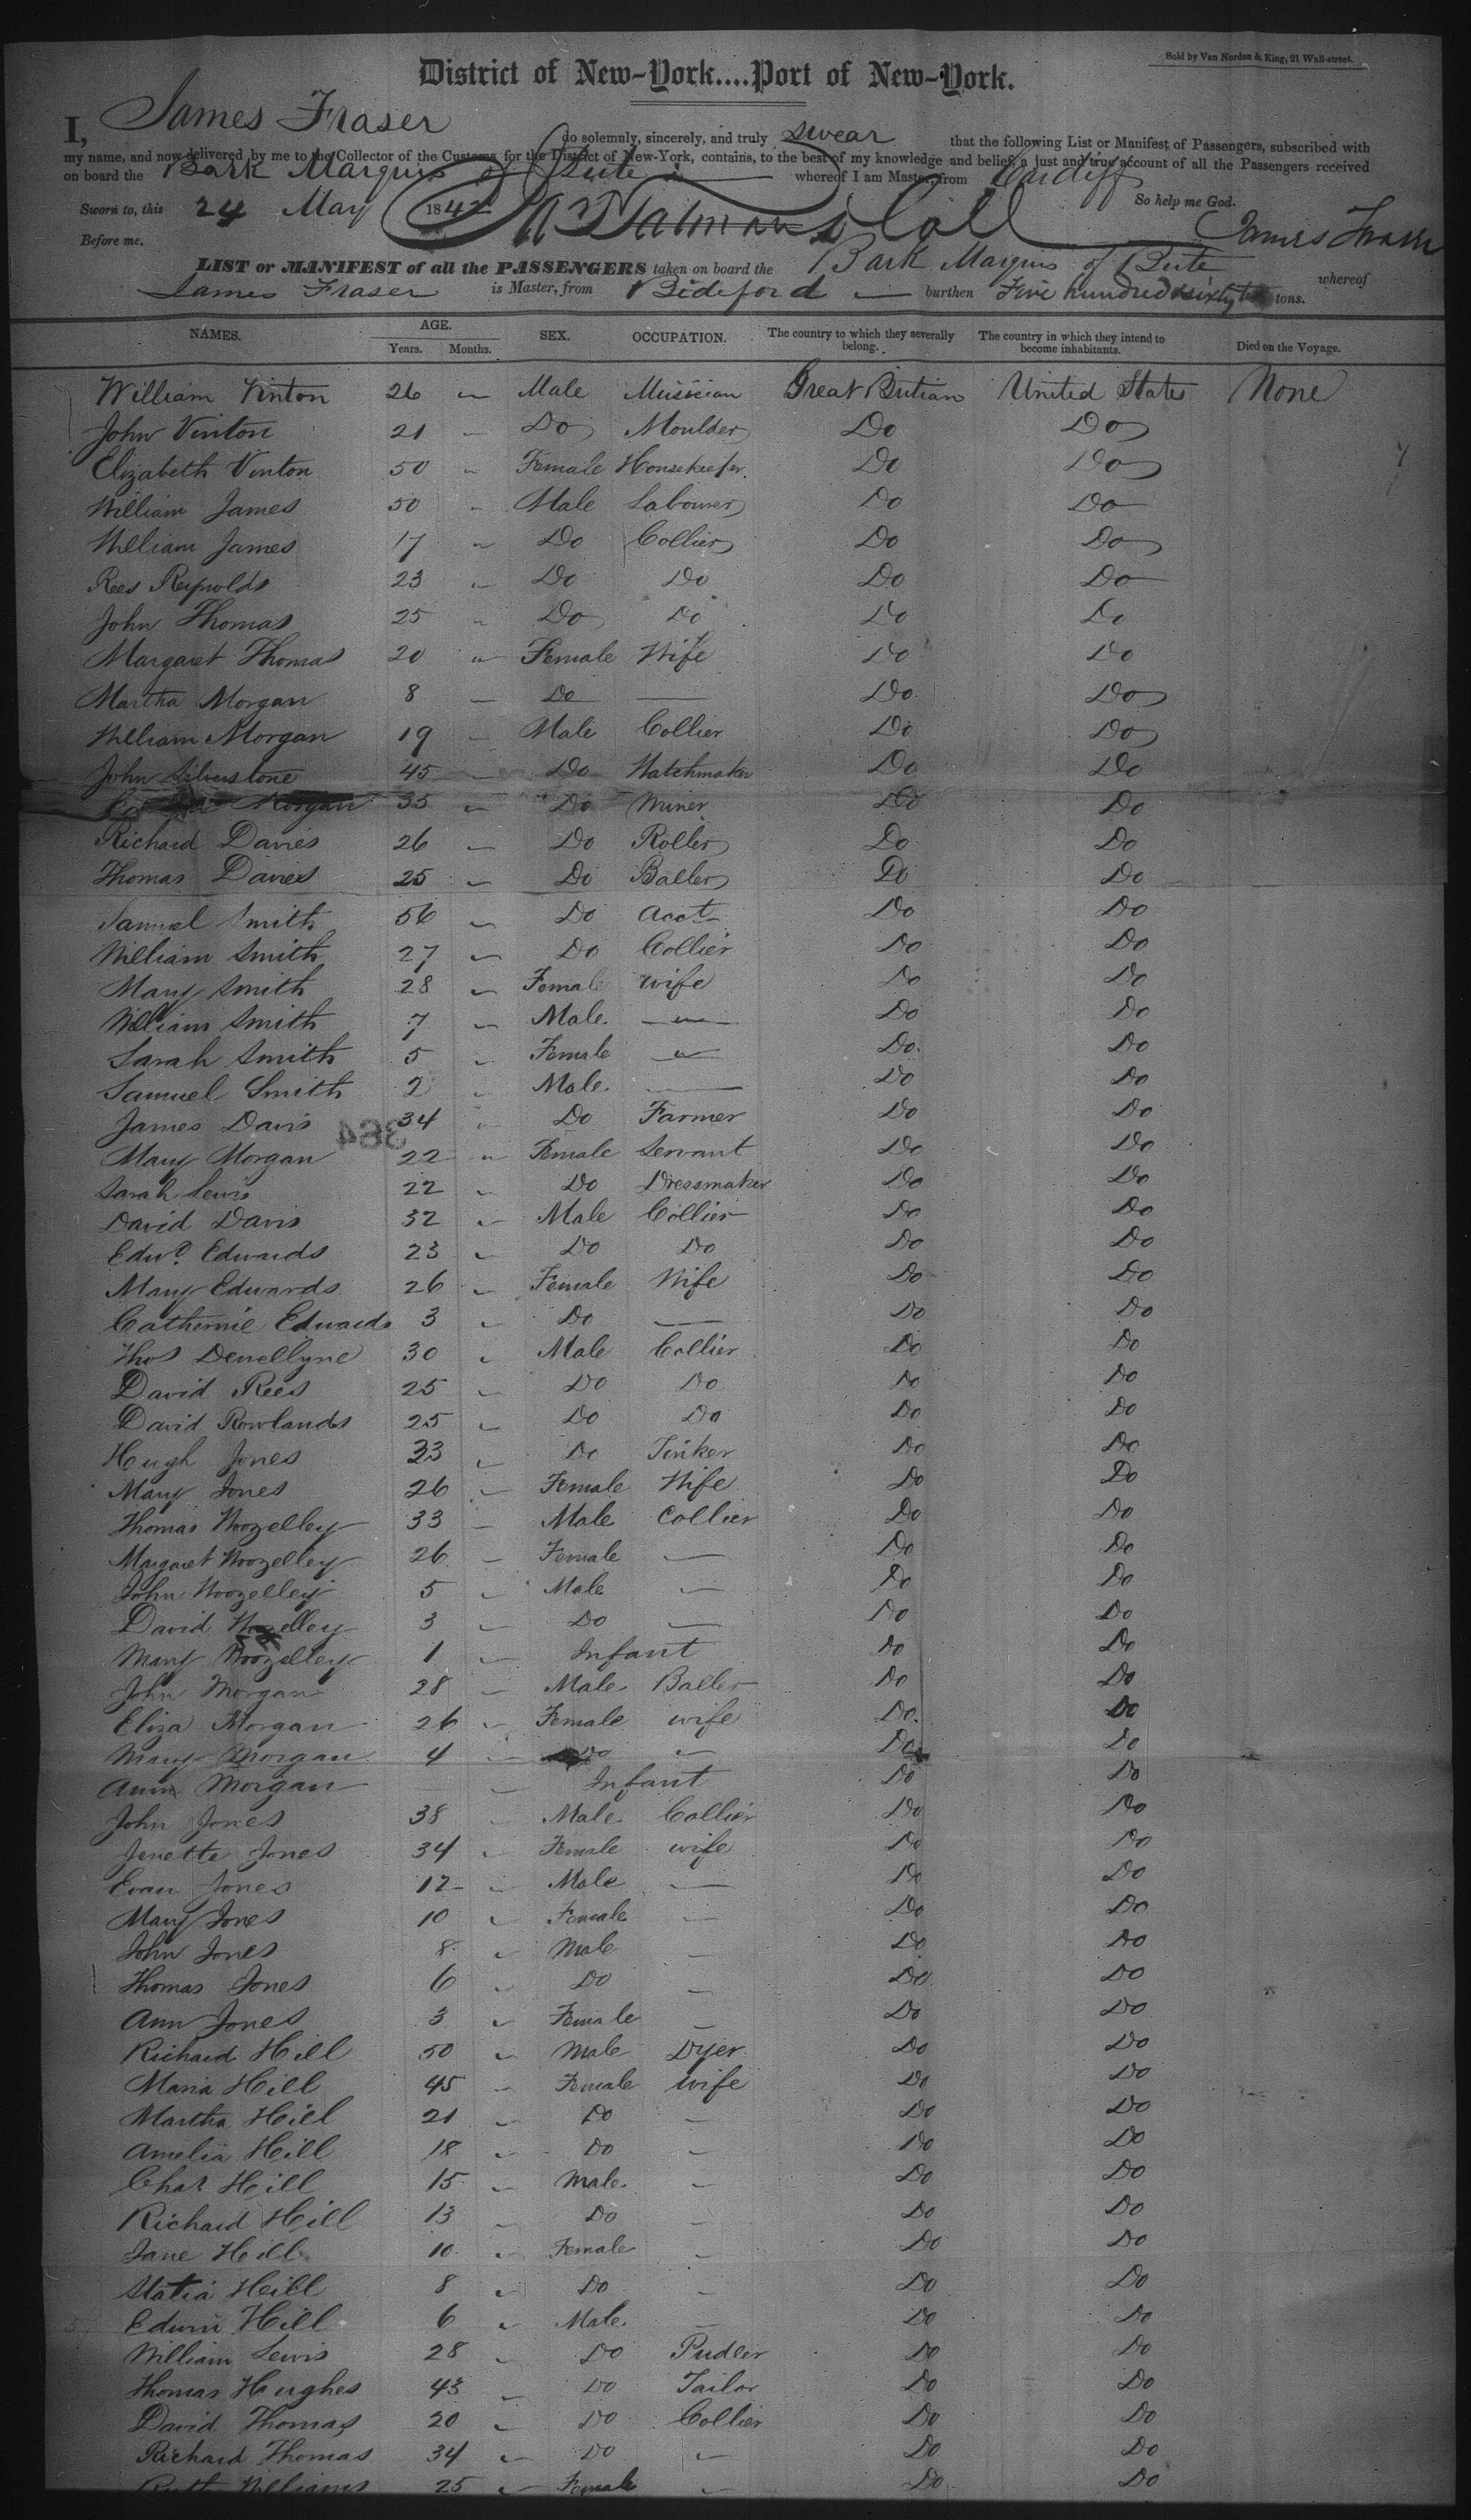 Sold by Van Norden & King, 21 Wall-street.
District of New-York....Port of New-York.
I, James Fraser do solemnly, sincerely, and truly swear that the following List or Manifest of Passengers, subscribed with
my name, and now delivered by me to the Collector of the Customs for the District of New-York, contains, to the best of my knowledge and belief, a just and true account of all the Passengers received
on board the Bark Marquis of Bute whereof I am Master, from Cardiff
Sworn to, this 24 May 1842 So help me God.
Before me, Coll James Fraser
LIST or MANIFEST of all the PASSENGERS taken on board the Bark Marquis of Bute whereof
James Fraser is Master, from Bideford burthen Five hundred & sixty tons.
NAMES. AGE. SEX. OCCUPATION. The country to which they severally belong. The country in which they intend to become inhabitants. Died on the Voyage.
Years. Months.
William Vinton 26 " Male Musician Great Britian United States None
John Vinton 21 " Do Moulder Do Do
Elizabeth Vinton 50 " Female Housekeeper Do Do
William James 50 " Male Labourer Do Do
William James 17 " Do Collier Do Do
Rees Reynolds 23 " Do Do Do Do
John Thomas 25 " Do Do Do Do
Margaret Thomas 20 " Female Wife Do Do
Martha Morgan 8 " Do — Do Do
William Morgan 19 " Male Collier Do Do
John Silverstone 45 " Do Watchmaker Do Do
Morgan 35 " Do Miner Do Do
Richard Davies 26 " Do Roller Do Do
Thomas Davies 25 " Do Baller Do Do
Samuel Smith 56 " Do Acct Do Do
William Smith 27 " Do Collier Do Do
Mary Smith 28 " Female wife Do Do
William Smith 7 " Male — Do Do
Sarah Smith 5 " Female — Do Do
Samuel Smith 2 " Male — Do Do
James Davis 34 " Do Farmer Do Do
364
Mary Morgan 22 " Female Servant Do Do
Sarah Lewis 22 " Do Dressmaker Do Do
David Davis 32 " Male Collier Do Do
Edwd. Edwards 23 " Do Do Do Do
Mary Edwards 26 " Female Wife Do Do
Catherine Edwards 3 " Do — Do Do
Thos Dewellyne 30 " Male Collier Do Do
David Rees 25 " Do Do Do Do
David Rowlands 25 " Do Do Do Do
Hugh Jones 33 " Do Tinker Do Do
Mary Jones 26 " Female Wife Do Do
Thomas Woozelley 33 " Male Collier Do Do
Margaret Woozelley 26 " Female — Do Do
John Woozelley 5 " Male — Do Do
David Woozelley 3 " Do — Do Do
Mary Woozelley 1 " Infant Do Do
John Morgan 28 " Male Baller Do Do
Eliza Morgan 26 " Female wife Do Do
Mary Morgan 4 " Do " Do Do
Ann Morgan " Infant Do Do
John Jones 38 " Male Collier Do Do
Jenette Jones 34 " Female wife Do Do
Evan Jones 12 " Male — Do Do
Mary Jones 10 " Female — Do Do
John Jones 8 " Male — Do Do
Thomas Jones 6 " Do — Do Do
Ann Jones 3 " Female — Do Do
Richard Hill 50 " Male Dyer Do Do
Maria Hill 45 " Female wife Do Do
Martha Hill 21 " Do — Do Do
Amelia Hill 18 " Do — Do Do
Chas Hill 15 " Male — Do Do
Richard Hill 13 " Do — Do Do
Jane Hill 10 " Female — Do Do
Hill 8 " Do — Do Do
Edwin Hill 6 " Male — Do Do
William Lewis 28 " Do Pudler Do Do
Thomas Hughes 43 " Do Tailor Do Do
David Thomas 20 " Do Collier Do Do
Richard Thomas 34 " Do " Do Do
Ruth Williams 25 " Female " Do Do